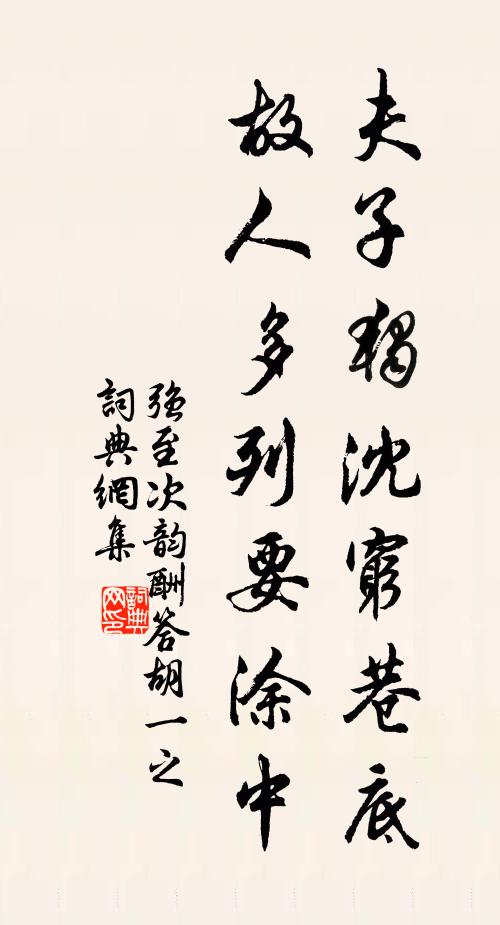 夫子獨沈窮巷底
故人多列要涂中
強至次韵酬答胡一之
詞典網集
詞典网印